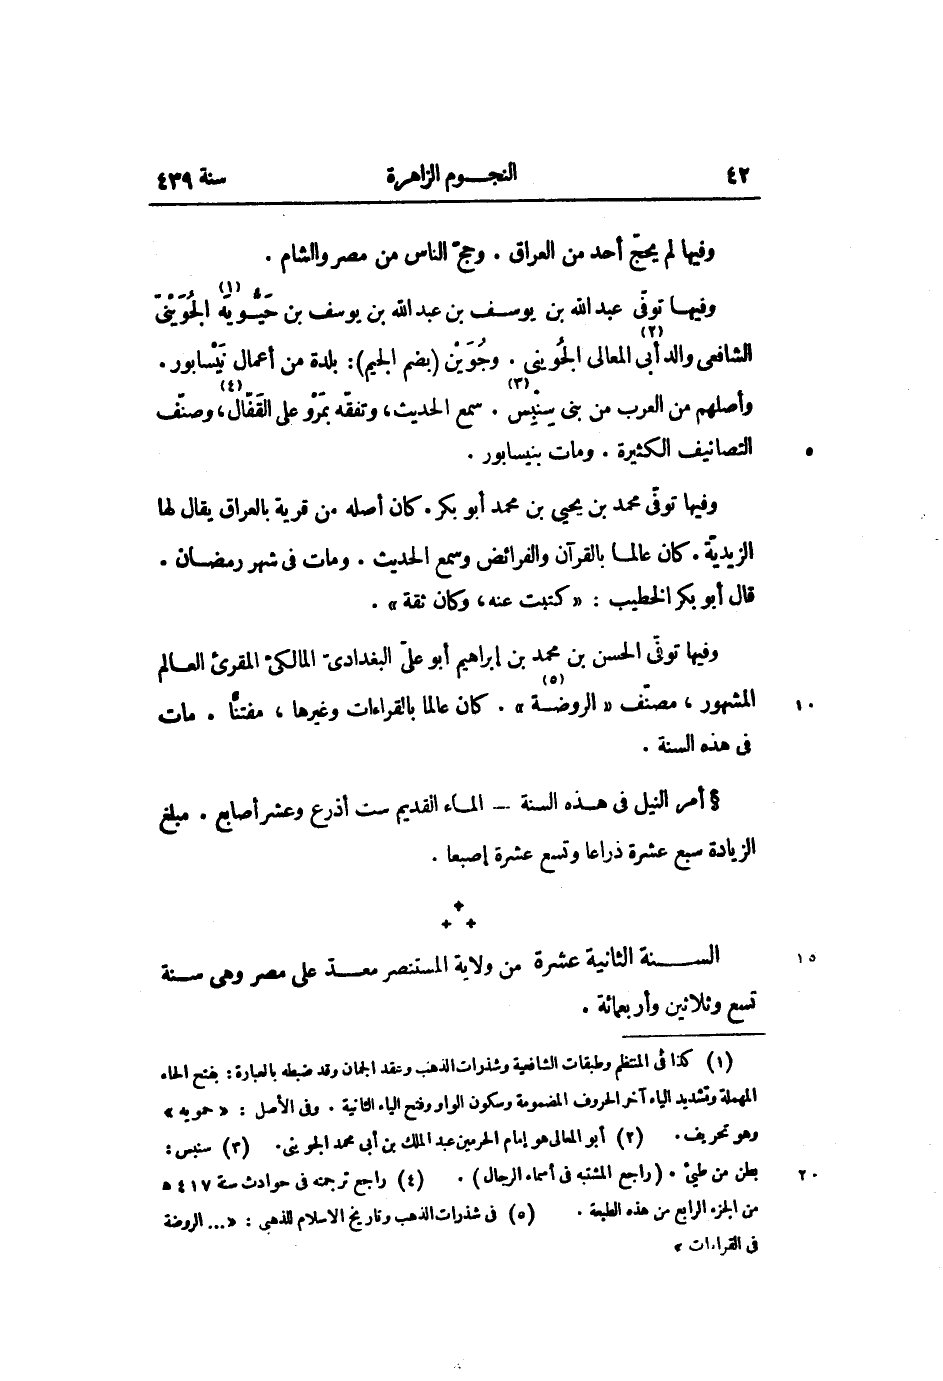 ٤٢ النجوم الزاهرة سنة ٤٣٩
وفيها لم يحجّ أحد من العراق . وحجّ الناس من مصر والشام .
وفيها توفّى عبد الله بن يوسف بن عبد الله بن يوسف بن حَيُّويَه (١) الجُوَيْنِىّ
الشافعى والد أبى المعالى (٢) الجُوينى . وجُوَيْن (بضم الجيم): بلدة من أعمال نَيْسابور .
وأصلهم من العرب من بنى سِنْبِس (٣) . سمع الحديث، وتفقّه بمَرْو على القَفّال (٤)، وصنّف
التصانيف الكثيرة . ومات بنيسابور . ٥
وفيها توفّى محمد بن يحيى بن محمد أبو بكر . كان أصله من قرية بالعراق يقال لها
الزيديّة . كان عالما بالقرآن والفرائض وسمع الحديث . ومات فى شهر رمضان .
قال أبو بكر الخطيب : « كتبت عنه، وكان ثقة » .
وفيها توفّى الحسن بن محمد بن إبراهيم أبو علىّ البغدادىّ المالكىّ المقرئ العالم
المشهور، مصنّف « الروضة (٥) » . كان عالما بالقراءات وغيرها، مفتنًّا . مات ١٠
فى هذه السنة .
§ أمر النيل فى هذه السنة — الماء القديم ست أذرع وعشر أصابع . مبلغ
الزيادة سبع عشرة ذراعا وتسع عشرة إصبعا .
السنة الثانية عشرة من ولاية المستنصر معدّ على مصر وهى سنة ١٥
تسع وثلاثين وأربعمائة .
(١) كذا فى المنتظم وطبقات الشافعية وشذرات الذهب وعقد الجمان وقد ضبطه بالعبارة : بفتح الحاء
المهملة وتشديد الياء آخر الحروف المضمومة وسكون الواو وفتح الياء الثانية . وفى الأصل : « حمويه »
وهو تحريف. (٢) أبو المعالى هو إمام الحرمين عبد الملك بن أبى محمد الجوينى. (٣) سنبس :
بطن من طيئ . (راجع المشتبه فى أسماء الرجال) . (٤) راجع ترجمته فى حوادث سنة ٤١٧ هـ ٢٠
من الجزء الرابع من هذه الطبعة . (٥) فى شذرات الذهب وتاريخ الاسلام للذهبى : «... الروضة
فى القراءات »